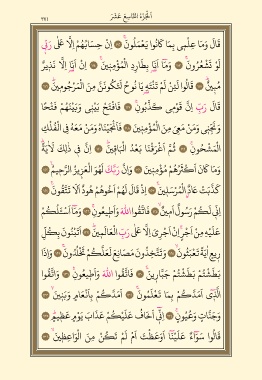 الجزء التاسع عشر
٣٧١
قَالَ وَمَا عِلْمِي بِمَا كَانُوا يَعْمَلُونَ ﴿١١٢﴾ إِنْ حِسَابُهُمْ إِلَّا عَلَى رَبِّي
لَوْ تَشْعُرُونَ ﴿١١٣﴾ وَمَا أَنَا بِطَارِدِ الْمُؤْمِنِينَ ﴿١١٤﴾ إِنْ أَنَا إِلَّا نَذِيرٌ
مُبِينٌ ﴿١١٥﴾ قَالُوا لَئِنْ لَمْ تَنْتَهِ يَا نُوحُ لَتَكُونَنَّ مِنَ الْمَرْجُومِينَ ﴿١١٦﴾
قَالَ رَبِّ إِنَّ قَوْمِي كَذَّبُونِ ﴿١١٧﴾ فَافْتَحْ بَيْنِي وَبَيْنَهُمْ فَتْحًا
وَنَجِّنِي وَمَنْ مَعِيَ مِنَ الْمُؤْمِنِينَ ﴿١١٨﴾ فَأَنْجَيْنَاهُ وَمَنْ مَعَهُ فِي الْفُلْكِ
الْمَشْحُونِ ﴿١١٩﴾ ثُمَّ أَغْرَقْنَا بَعْدُ الْبَاقِينَ ﴿١٢٠﴾ إِنَّ فِي ذَلِكَ لَآيَةً
وَمَا كَانَ أَكْثَرُهُمْ مُؤْمِنِينَ ﴿١٢١﴾ وَإِنَّ رَبَّكَ لَهُوَ الْعَزِيزُ الرَّحِيمُ ﴿١٢٢﴾
كَذَّبَتْ عَادٌ الْمُرْسَلِينَ ﴿١٢٣﴾ إِذْ قَالَ لَهُمْ أَخُوهُمْ هُودٌ أَلَا تَتَّقُونَ ﴿١٢٤﴾
إِنِّي لَكُمْ رَسُولٌ أَمِينٌ ﴿١٢٥﴾ فَاتَّقُوا اللَّهَ وَأَطِيعُونِ ﴿١٢٦﴾ وَمَا أَسْئَلُكُمْ
عَلَيْهِ مِنْ أَجْرٍ إِنْ أَجْرِيَ إِلَّا عَلَى رَبِّ الْعَالَمِينَ ﴿١٢٧﴾ أَتَبْنُونَ بِكُلِّ
رِيعٍ آيَةً تَعْبَثُونَ ﴿١٢٨﴾ وَتَتَّخِذُونَ مَصَانِعَ لَعَلَّكُمْ تَخْلُدُونَ ﴿١٢٩﴾ وَإِذَا
بَطَشْتُمْ بَطَشْتُمْ جَبَّارِينَ ﴿١٣٠﴾ فَاتَّقُوا اللَّهَ وَأَطِيعُونِ ﴿١٣١﴾ وَاتَّقُوا
الَّذِي أَمَدَّكُمْ بِمَا تَعْلَمُونَ ﴿١٣٢﴾ أَمَدَّكُمْ بِأَنْعَامٍ وَبَنِينَ ﴿١٣٣﴾
وَجَنَّاتٍ وَعُيُونٍ ﴿١٣٤﴾ إِنِّي أَخَافُ عَلَيْكُمْ عَذَابَ يَوْمٍ عَظِيمٍ ﴿١٣٥﴾
قَالُوا سَوَاءٌ عَلَيْنَا أَوَعَظْتَ أَمْ لَمْ تَكُنْ مِنَ الْوَاعِظِينَ ﴿١٣٦﴾